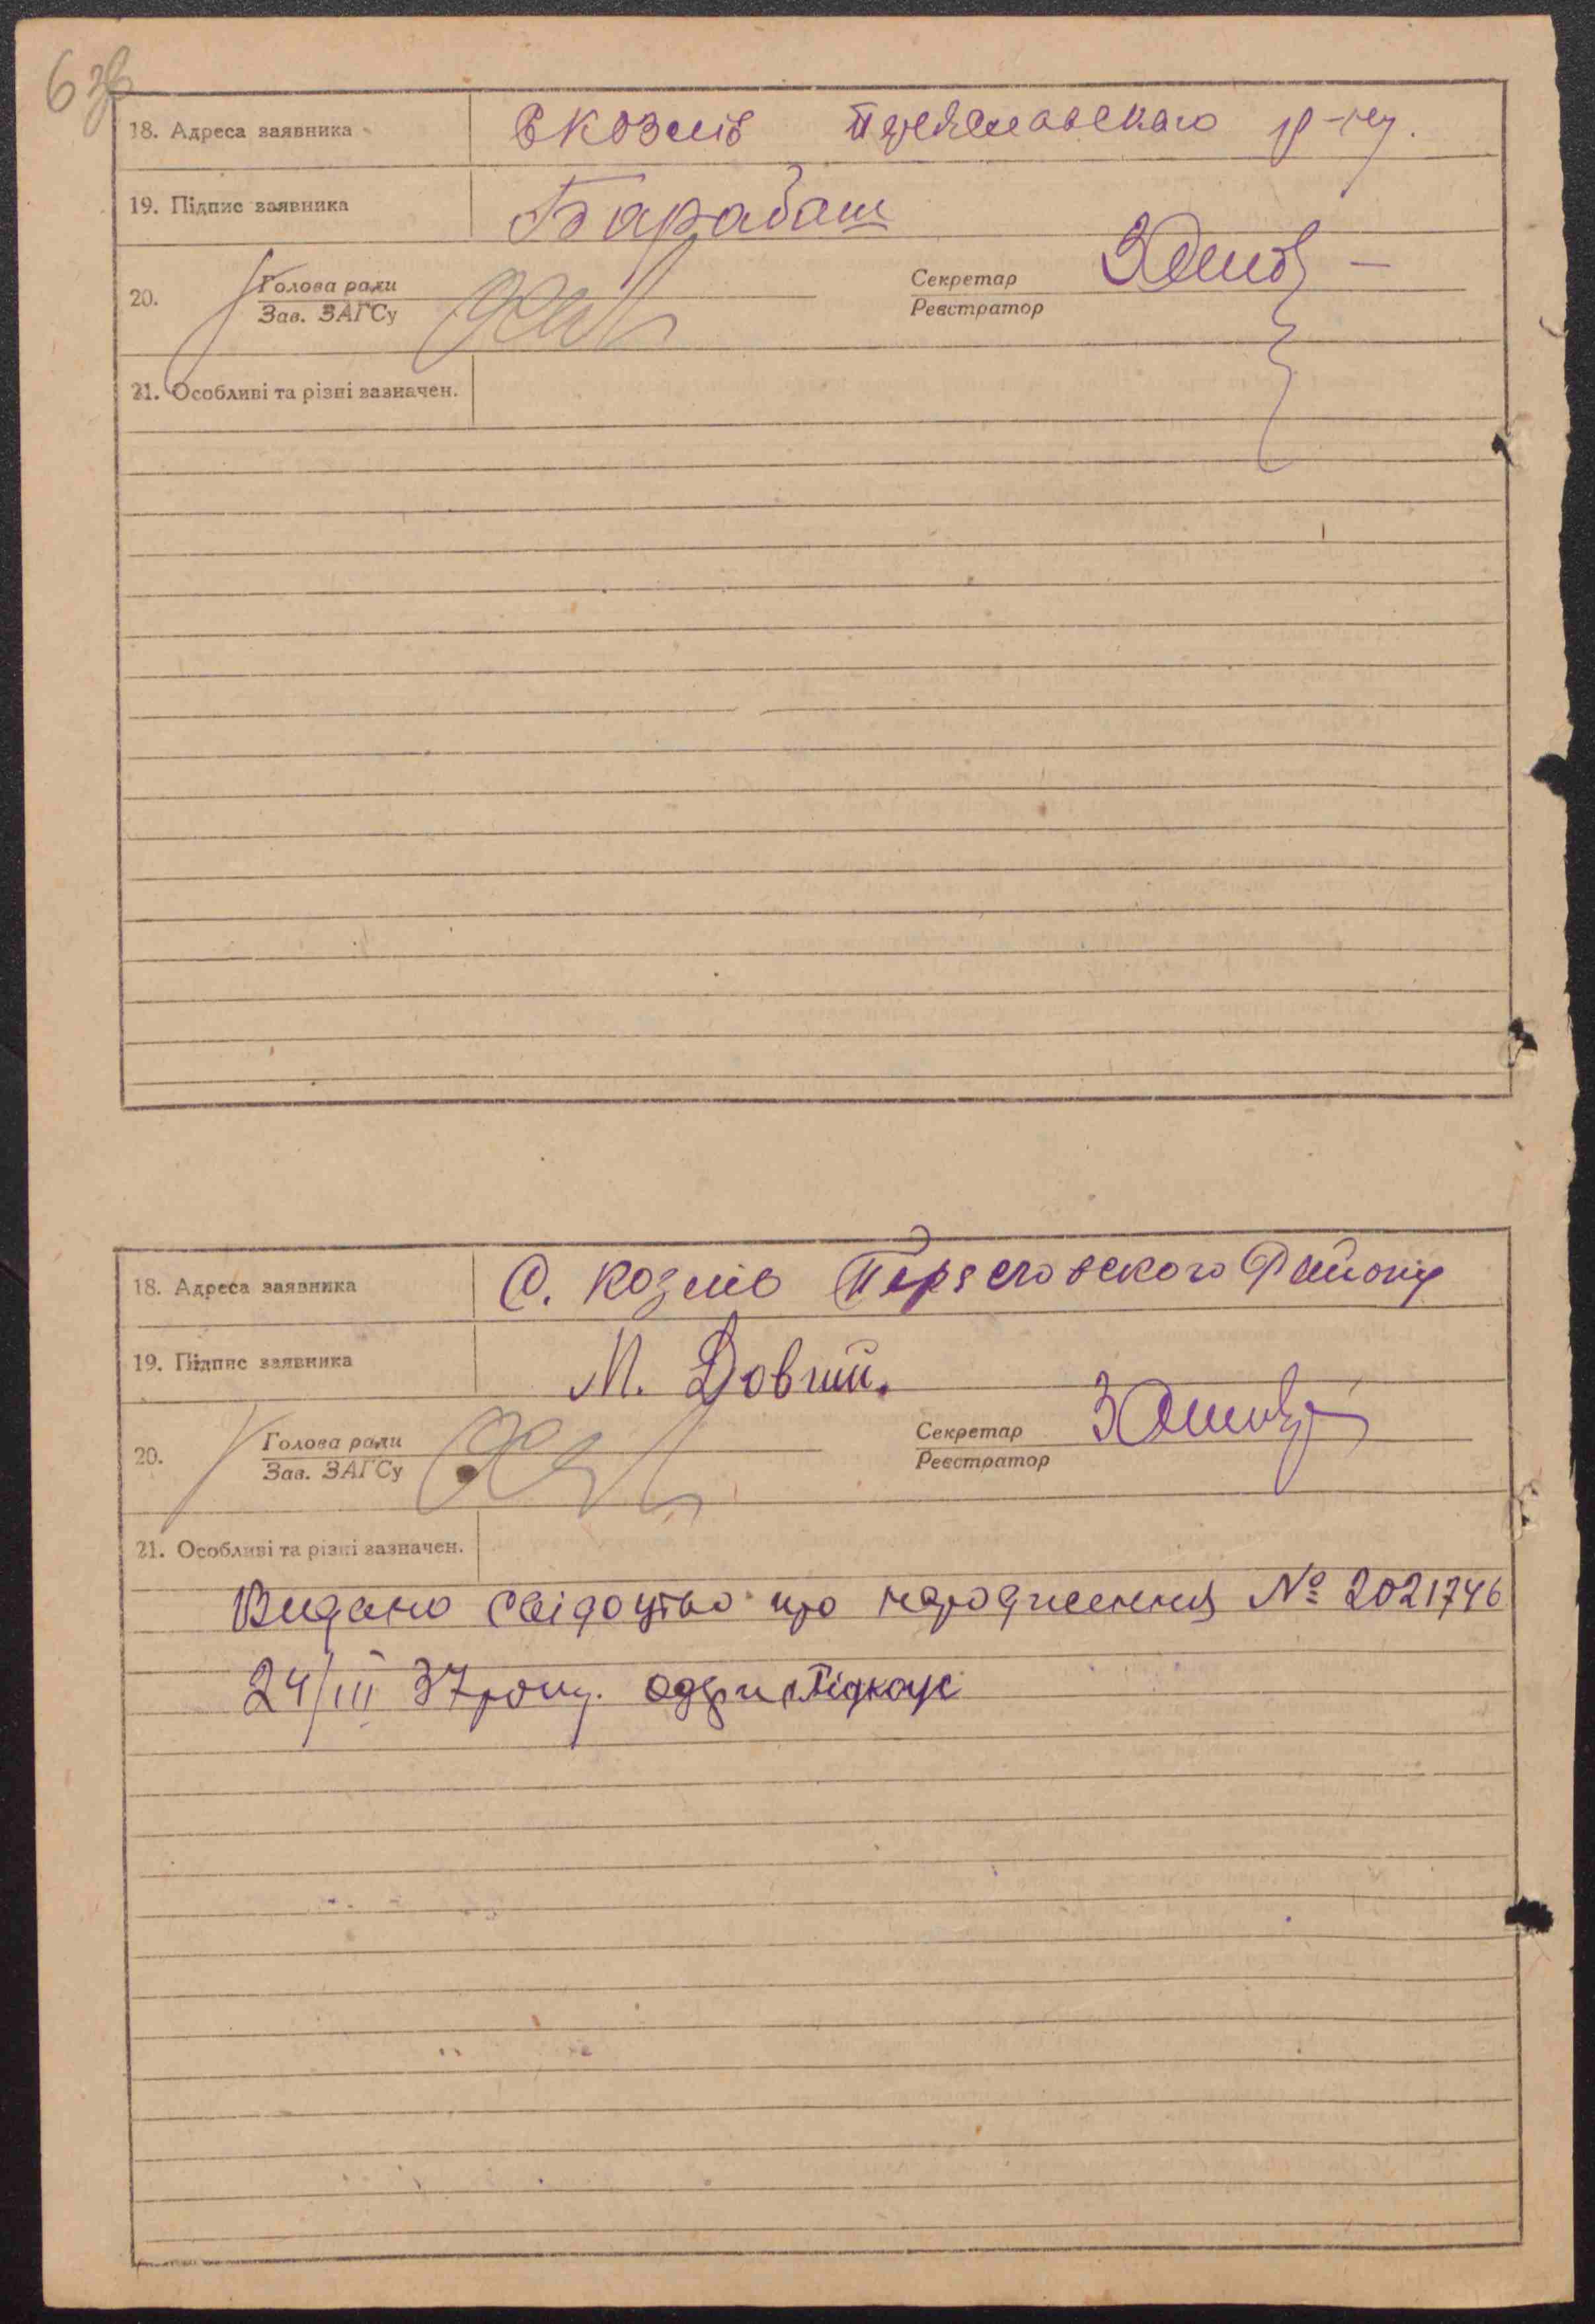 6 зв
18. Адреса заявника С Козлів Переяславского р-ну.
19. Підпис заявника Барабаш
20. Голова ради
Зав. ЗАГСу
Секретар
Реєстратор
21. Особливі та різні зазначен.
18. Адреса заявника С. Козлів Переяславского Району
19. Підпис заявника М. Довгий.
20. Голова ради
Зав. ЗАГСу
Секретар
Реєстратор
21. Особливі та різні зазначен.
Видано свідоцтво про народження № 2021746
24/III 37 року.